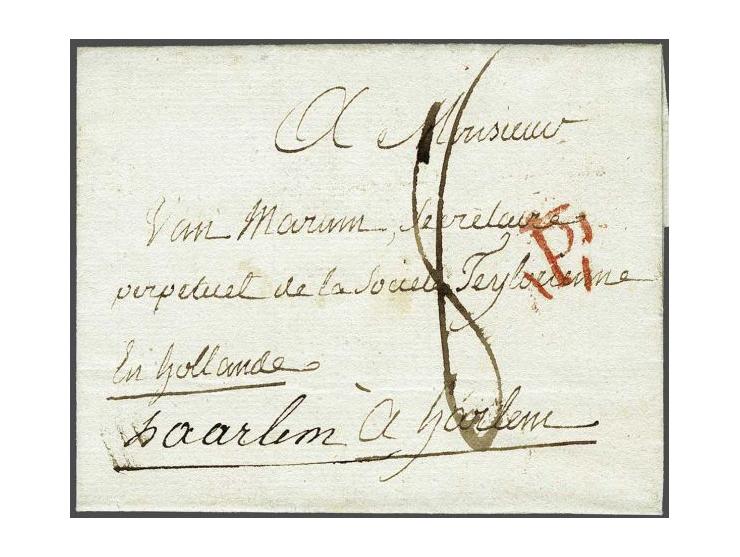 A Monsieur
Van Marum, Secretaire
perpetuel de la Societé Teylorienne
En hollande
haarlem à harlem
P
8